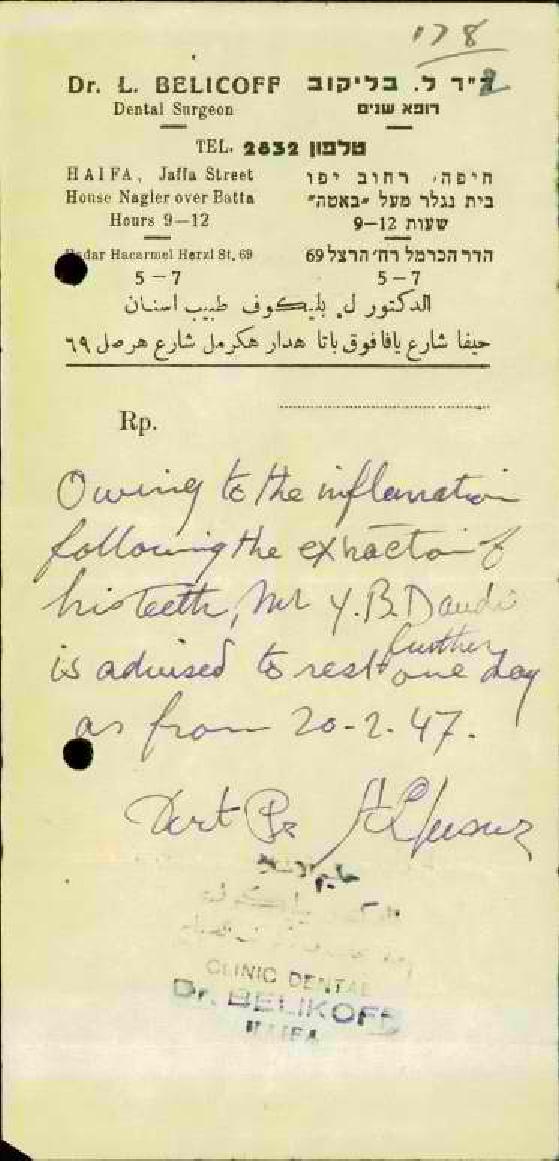 178
2
Dr. L. BELICOFF ד"ר ל. בליקוב
Dental Surgeon רופא שנים
TEL. 2832 טלפון
HAIFA, Jaffa Street חיפה, רחוב יפו
House Nagler over Batta בית נגלר מעל "באטה"
Hours 9–12 שעות 9–12
Hadar Hacarmel Herzl St. 69 הדר הכרמל רח' הרצל 69
5 – 7 5 – 7
الدكتور ل. بليكوف طبيب اسنان
حيفا شارع يافا فوق باتا هدار هكرمل شارع هرصل ٦٩
Rp.
Owing to the inflamation
following the extraction of
his teeth, Mr Y. B. Daudi
is advised to rest further one day
as from 20-2.47.
CLINIC DENTAL
Dr. BELIKOFF
HAIFA